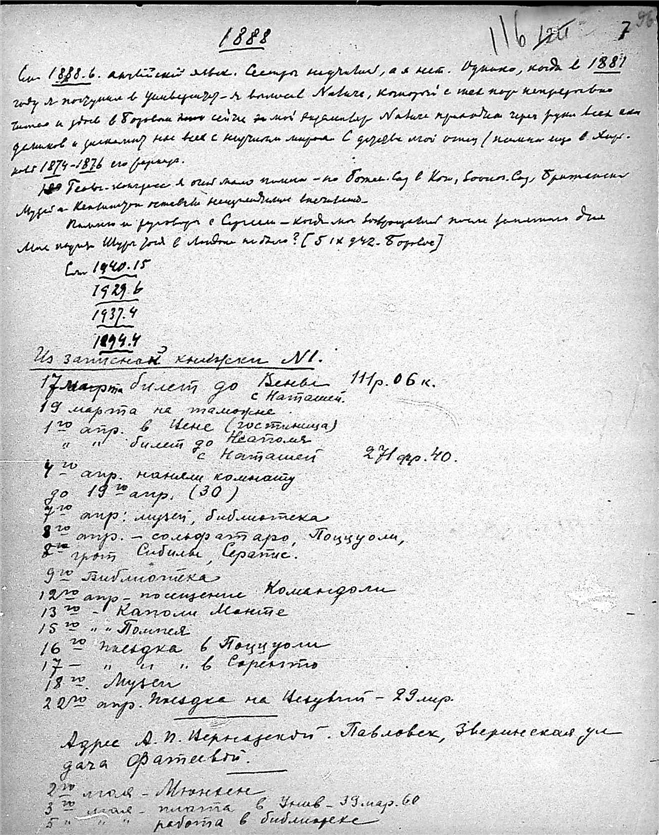 1888
116
7
См. 1888.6. английский язык. Сестры научились, а я нет. Однако, когда в 1881
году я поступил в Университет - я выписал Nature, который с тех пор непрерывно
читаю и здесь в Боровом сейчас мой экземпляр Nature проходит через руки всех ака
демиков и нас всех с научным миром. С детства мой отец (помню еще в Харь
кове 1874-1876 его
конгресс я очень мало помню - но Ботан. Сад в Кью, Zoolog. Сад, Британский
Музей и Кенсингтон оставили неизгладимые впечатления.
Помню и разговор с Сергеем - когда мы возвращались после
в Лондон не было? [5 IX 942. Боровое]
См. 1940.15
1929.6
1937.4
1894.4
Из записной книжки N1.
17 марта билет до Вены 111р. 06 к.
с Наташей.
19 марта на таможне.
1го апр. в Вене (гостиница)
" " билет до Неаполя
с Наташей 271 фр. 40.
4го апр. наняли комнату
до 19го апр. (30)
7го апр. музей, библиотека
8го апр. - сольфатаро, Поццуоли,
8го грот Сибилы, Серапис.
9го Библиотека
12го апр - посещение Командоли
13го - Каполи Монте
15го " " Помпея
16го поездка в Поццуоли
17 - " " " в Соренто
18го. Музеи
22го апр. Поездка на Везувий - 29 лир.
Адрес А. П. Вернадской. Павловск, Зверинская ул
дача Фатеевой.
2го мая - Мюнхен
3го мая - плата в Унив - 39 мар. 60
5 " " работа в библиотеке